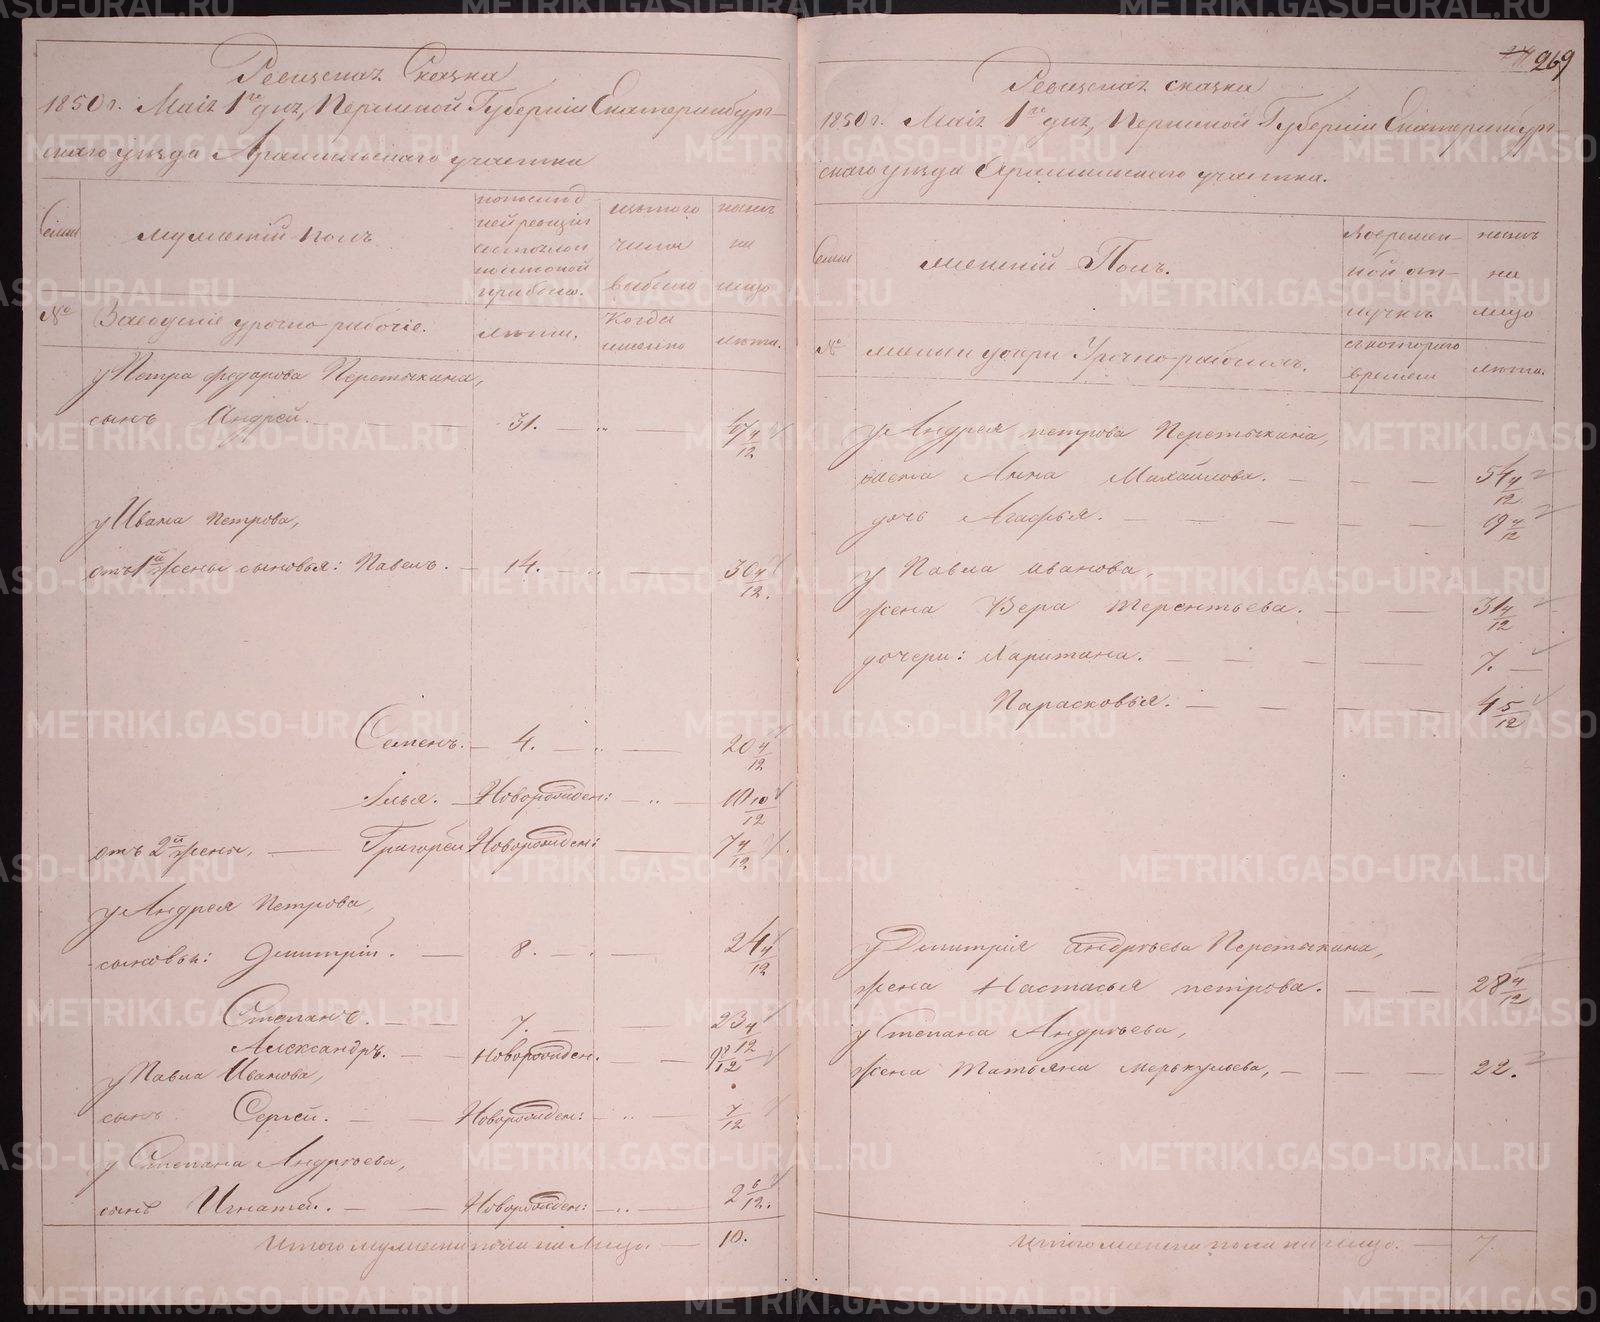 269
Ревизская Сказка
1850 г. Маія 1го дня, Пермской Губерніи Екатеринбург-
скаго уѣзда Арамильскаго участка
Семьи
мужескій полъ
по послѣд
ней ревизіи
состояло
и послѣ оной
прибыло.
изъ того
числа
выбыло
нынѣ
на
лицо
№
Заводскіе урочно-рабочіе.
лѣта.
Когда
именно
лѣта.
у Петра Федорова Перетыкина,
сынъ Андрей. 31. 47 4/12
у Ивана Петрова,
отъ 1й жены сыновья: Павелъ. 14. 30 4/12.
Семенъ. 4. 20 4/12
Илья. Новорожден: 10 10/12
отъ 2й жены, Григорей Новорожден: 7 4/12
у Андрея Петрова,
сыновья: Дмитрій. 8. 24 4/12
Степанъ. 7. 23 4/12
Александръ. Новорожден. 9 8/12
у Павла Иванова,
сынъ Сергей. Новорожден: 7/12
у Степана Андрѣева,
сынъ Игнатей. Новорожден: 2 6/12.
Итого мужеска пола на Лицо. 10.
Ревизская сказка
1850 г. Маія 1го дня, Пермской Губерніи Екатеринбург-
скаго уѣзда Арамильскаго участка.
Семьи
женскій Полъ.
Во времен-
ной от-
лучкѣ
нынѣ
на
лицо
№
жены и дочери Урочно-рабочихъ.
съ котораго
времени
лѣта.
у Андрея петрова Перетыкина,
жена Анна Михайлова. 54 4/12
дочь Агафья. 19 4/12
у Павла иванова,
жена Вера терентьева. 31 4/12
дочери: Харитина. 7.
Парасковья. 4 5/12
у Дмитрія андрѣева Перетыкина,
жена Настасья петрова. 28 4/12
у Степана Андрѣева,
жена Татьяна меркульева, 22.
Итого женска пола на лицо. 7.
METRIKI.GASO-URAL.RU